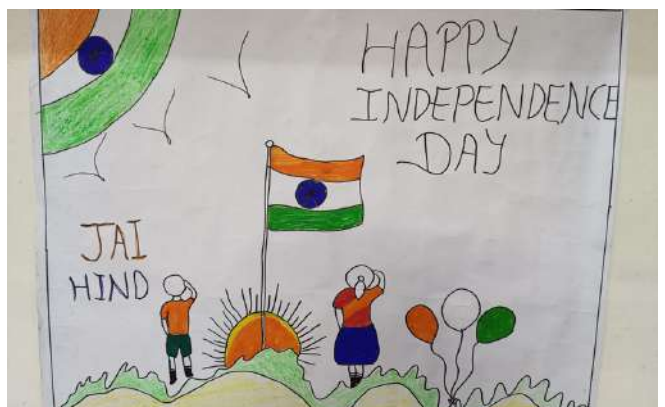 HAPPY
INDEPENDENCE
DAY
JAI
HIND